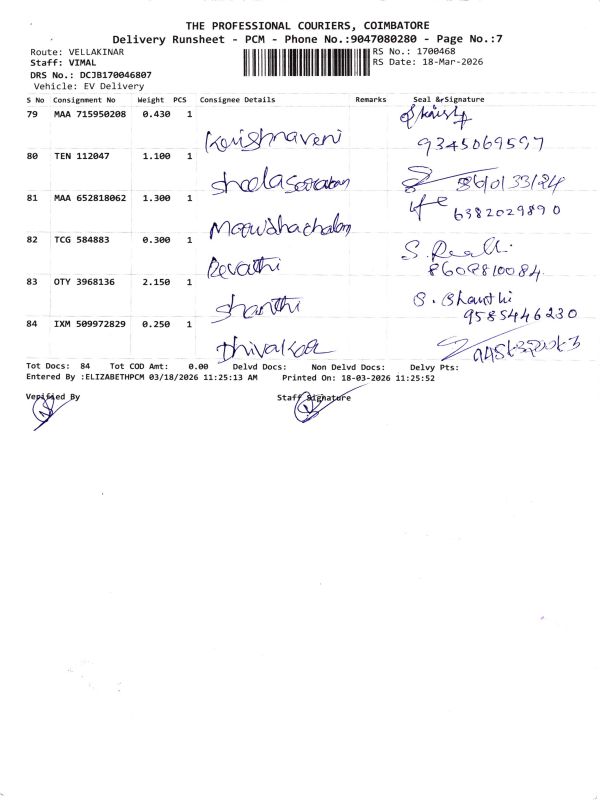 THE PROFESSIONAL COURIERS, COIMBATORE
Delivery Runsheet - PCM - Phone No.:9047080280 - Page No.:7
Route: VELLAKINAR RS No.: 1700468
Staff: VIMAL RS Date: 18-Mar-2026
DRS No.: DCJB170046807
Vehicle: EV Delivery
S No Consignment No Weight PCS Consignee Details Remarks Seal & Signature
79 MAA 715950208 0.430 1
Krishnaveni 9345069597
80 TEN 112047 1.100 1
81 MAA 652818062 1.300 1
6382029890
82 TCG 584883 0.300 1
Revathi
83 OTY 3968136 2.150 1
Shanthi 9585446230
84 IXM 509972829 0.250 1
Tot Docs: 84 Tot COD Amt: 0.00 Delvd Docs: Non Delvd Docs: Delvy Pts:
Entered By :ELIZABETHPCM 03/18/2026 11:25:13 AM Printed On: 18-03-2026 11:25:52
Verified By Staff Signature